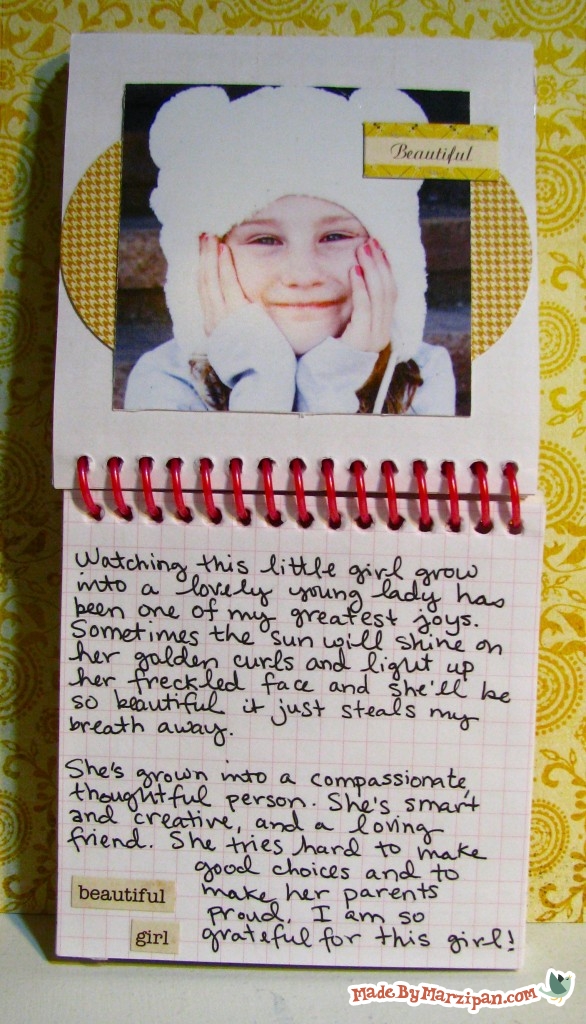 Beautiful
Watching this little girl grow
into a lovely young lady has
been one of my greatest joys.
Sometimes the sun will shine on
her golden curls and light up
her freckled face and she'll be
so beautiful it just steals my
breath away.
She's grown into a compassionate,
thoughtful person. She's smart
and creative, and a loving
friend. She tries hard to make
good choices and to
make her parents
proud. I am so
grateful for this girl!
beautiful
girl
MadeByMarzipan.com